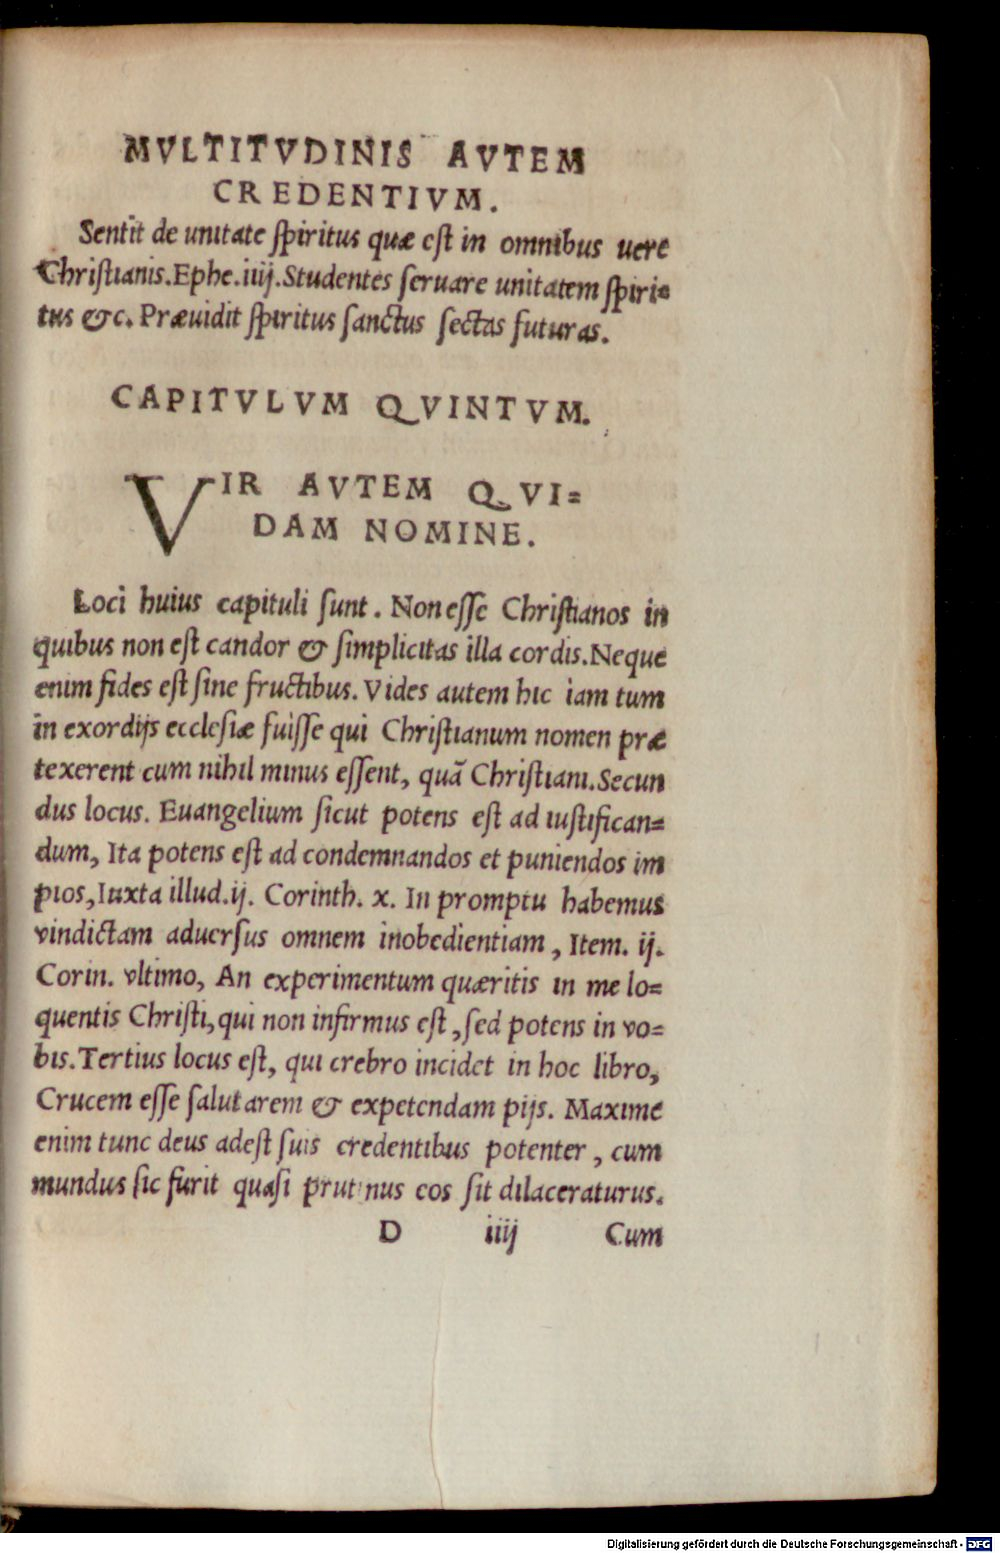 MVLTITVDINIS AVTEM
CREDENTIVM.
Sentit de unitate spiritus quæ est in omnibus uere
Christianis. Ephe. iiij. Studentes seruare unitatem spiri=
tus &c. Præuidit spiritus sanctus sectas futuras.
CAPITVLVM QVINTVM.
VIR AVTEM QVI=
DAM NOMINE.
Loci huius capituli sunt. Non esse Christianos in
quibus non est candor & simplicitas illa cordis. Neque
enim fides est sine fructibus. Vides autem hic iam tum
in exordijs ecclesiæ fuisse qui Christianum nomen præ
texerent cum nihil minus essent, quā Christiani. Secun
dus locus. Euangelium sicut potens est ad iustifican=
dum, Ita potens est ad condemnandos et puniendos im
pios, Iuxta illud. ij. Corinth. x. In promptu habemus
vindictam aduersus omnem inobedientiam, Item. ij.
Corin. vltimo, An experimentum quæritis in me lo=
quentis Christi, qui non infirmus est, sed potens in vo=
bis. Tertius locus est, qui crebro incidet in hoc libro,
Crucem esse salutarem & expetendam pijs. Maxime
enim tunc deus adest suis credentibus potenter, cum
mundus sic furit quasi prutinus eos sit dilaceraturus.
D iiij Cum
Digitalisierung gefördert durch die Deutsche Forschungsgemeinschaft - DFG